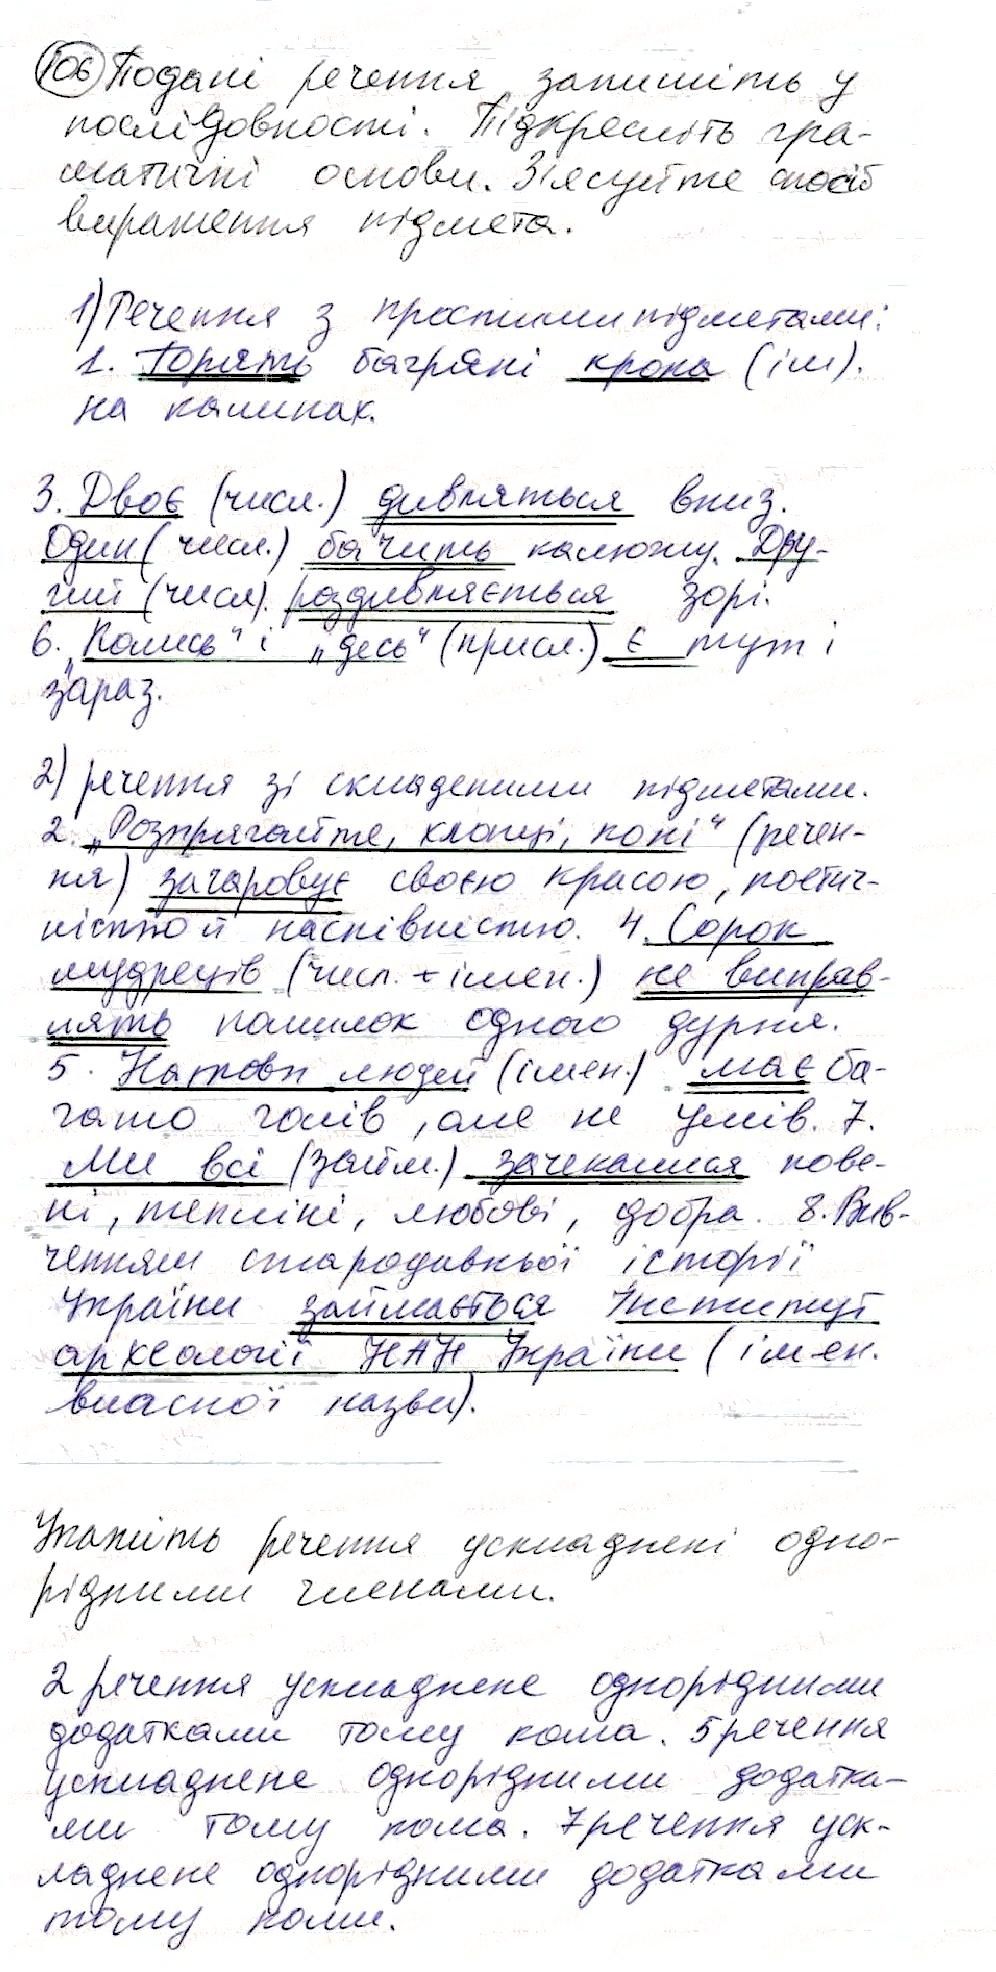 106 Подані речення запишіть у
послідовності. Підкресліть гра-
матичні основи. З'ясуйте спосіб
вираження підмета.
1) Речення з простими підметами:
1. Горять багряні крона (ім).
на калинах.
3. Двоє (числ.) дивляться вниз.
Один (числ.) бачить калюжу. Дру-
гий (числ). роздивляється зорі.
6. „Колись" і „десь" (присл.) є тут і
зараз.
2) речення зі складеними підметами.
2. „Розпрягайте, хлопці, коні" (речен-
ня) зачаровує своєю красою, поетич-
ністю й наспівністю. 4. Сорок
мудреців (числ. + імен.) не виправ-
лять помилок одного дурня.
5. Натовп людей (імен.) має ба-
гато голів, але не умів. 7.
Ми всі (займ.) зачекалися пове-
ні, теплині, любові, добра. 8. Вив-
ченням стародавньої історії
України займається Інститут
археології НАН України (імен.
власної назви).
Укажіть речення ускладнені одно-
рідними членами.
2 речення ускладнене однорідними
додатками тому кома. 5 речення
ускладнене однорідними додатка-
ми тому кома. 7 речення уск-
ладнене однорідними додатками
тому коми.